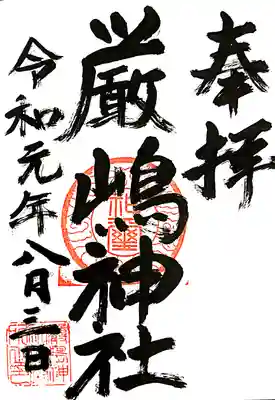 奉拝
厳嶋神社
令和元年八月三日